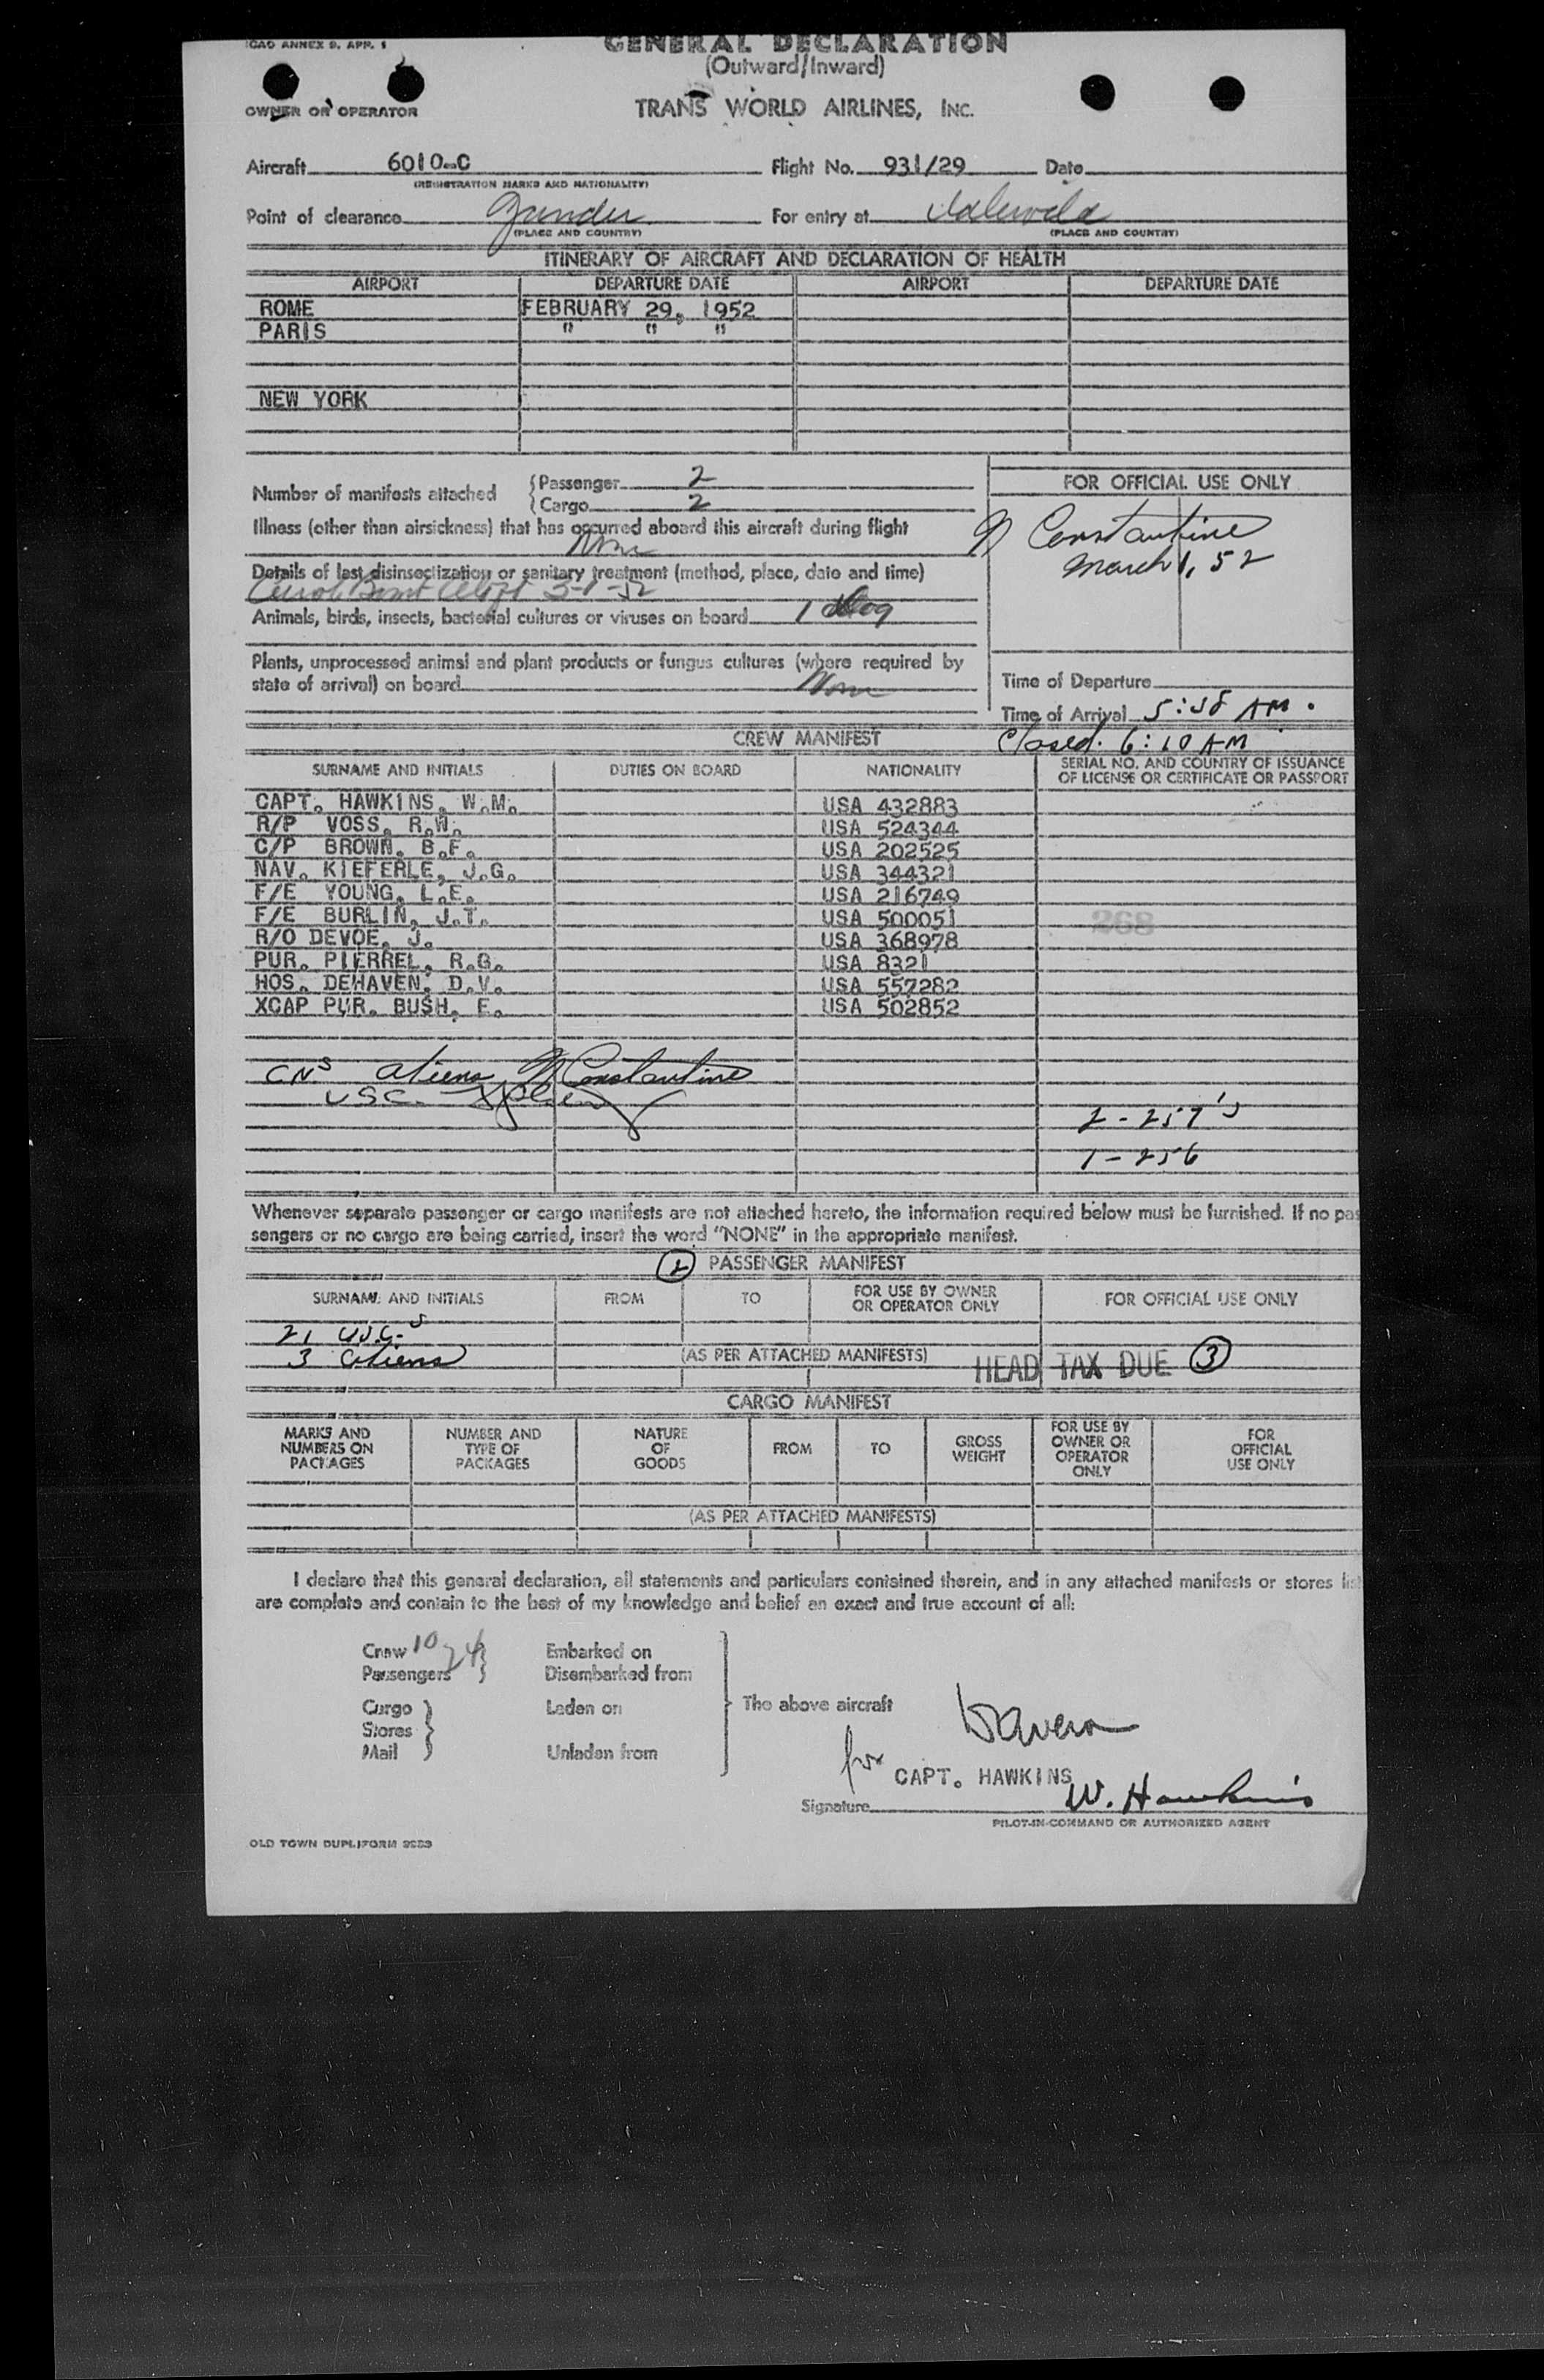 ICAO ANNEX 9, APP. 1
GENERAL DECLARATION
(Outward/Inward)
OWNER OR OPERATOR TRANS WORLD AIRLINES, INC.
Aircraft 6010-C Flight No. 931/29 Date
(REGISTRATION MARKS AND NATIONALITY)
Point of clearance Gander For entry at Idlewild
(PLACE AND COUNTRY) (PLACE AND COUNTRY)
ITINERARY OF AIRCRAFT AND DECLARATION OF HEALTH
AIRPORT DEPARTURE DATE AIRPORT DEPARTURE DATE
ROME FEBRUARY 29, 1952
PARIS " " "
NEW YORK
Number of manifests attached
Passenger 2
Cargo 2
FOR OFFICIAL USE ONLY
Illness (other than airsickness) that has occurred aboard this aircraft during flight
None
Constantine
March 1, 52
Details of last disinsectization or sanitary treatment (method, place, date and time)
3-1-52
Animals, birds, insects, bacterial cultures or viruses on board 1 dog
Plants, unprocessed animal and plant products or fungus cultures (where required by
state of arrival) on board None
Time of Departure
Time of Arrival 5:58 AM.
Closed. 6:10 AM
CREW MANIFEST
SURNAME AND INITIALS DUTIES ON BOARD NATIONALITY SERIAL NO. AND COUNTRY OF ISSUANCE
OF LICENSE OR CERTIFICATE OR PASSPORT
CAPT. HAWKINS, W.M. USA 432883
R/P VOSS, R.W. USA 524344
C/P BROWN, B.F. USA 202525
NAV. KIEFERLE, J.G. USA 344321
F/E YOUNG, L.E. USA 216749
F/E BURLIN, J.T. USA 500051
268
R/O DEVOE, J. USA 368978
PUR. PIERREL, R.G. USA 8321
HOS. DEHAVEN, D.V. USA 557282
XCAP PUR. BUSH, E. USA 502852
aliens Constantine
USC.
2 - 257's
1 - 256
Whenever separate passenger or cargo manifests are not attached hereto, the information required below must be furnished. If no pas
sengers or no cargo are being carried, insert the word "NONE" in the appropriate manifest.
2 PASSENGER MANIFEST
SURNAME AND INITIALS FROM TO FOR USE BY OWNER
OR OPERATOR ONLY FOR OFFICIAL USE ONLY
21 USC.s
3 aliens (AS PER ATTACHED MANIFESTS) HEAD TAX DUE 3
CARGO MANIFEST
MARKS AND
NUMBERS ON
PACKAGES
NUMBER AND
TYPE OF
PACKAGES
NATURE
OF
GOODS
FROM
TO
GROSS
WEIGHT
FOR USE BY
OWNER OR
OPERATOR
ONLY
FOR
OFFICIAL
USE ONLY
(AS PER ATTACHED MANIFESTS)
I declare that this general declaration, all statements and particulars contained therein, and in any attached manifests or stores lis
are complete and contain to the best of my knowledge and belief an exact and true account of all:
Crew 10 Embarked on
Passengers 24 Disembarked from
Cargo Laden on The above aircraft
Stores
Mail Unladen from
for CAPT. HAWKINS
Signature W. Hawkins
PILOT-IN-COMMAND OR AUTHORIZED AGENT
OLD TOWN DUPLIFORM